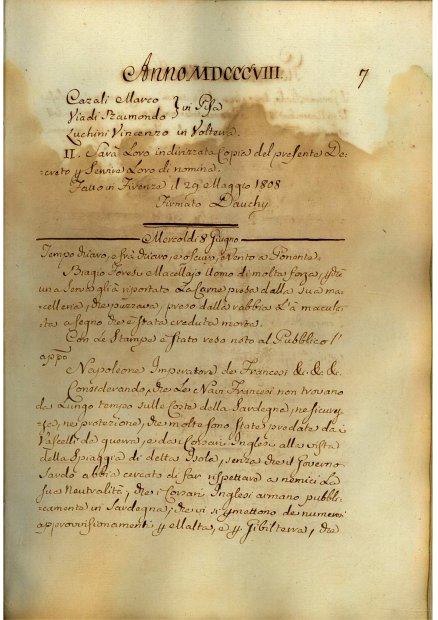 Anno MDCCCVIII. 7
Cazali Marco
Viadi Raimondo } in Pisa
Luchini Vincenzo in Volterra.
II. Sarà Loro indirizzata Copia del presente De-
creto p Servire Loro di nomina.
Fatto in Firenze il 29 Maggio 1808
Firmato Dauchy
Mercoldi 8 Giugno
Tempo chiaro, e frà chiaro, e oscuro, e Vento a Ponente.
Biagio Foresi Macellajo Uomo di molta forza,
una Serva gli à riportato La Carne presa dalla sua ma-
celleria, che puzzava, preso dalla rabbia L'à macula-
ta a segno che è Stata creduta morta.
Con Le Stampe è Stato reso noto al Pubblico l'
appo
Napoleone Imperatore de Francesi &. &. &.
Considerando, che Le Navi Francesi non trovano
da Lungo tempo sulle Coste della Sardegna, ne sicurez-
za, ne protezione, che molte sono State predate da i
Vascelli da guerra, e da Corsari Inglesi alla vista
della Spiaggia di detta Isola, senza che il Governo
Sardo abbia cercato di far rispettare a nemici La
sua Neutralità, che i Corsari Inglesi armano pubbli-
camente in Sardegna; che vi si mettono de numerosi
approvvisionamenti p Malta, e p Gibilterra, che